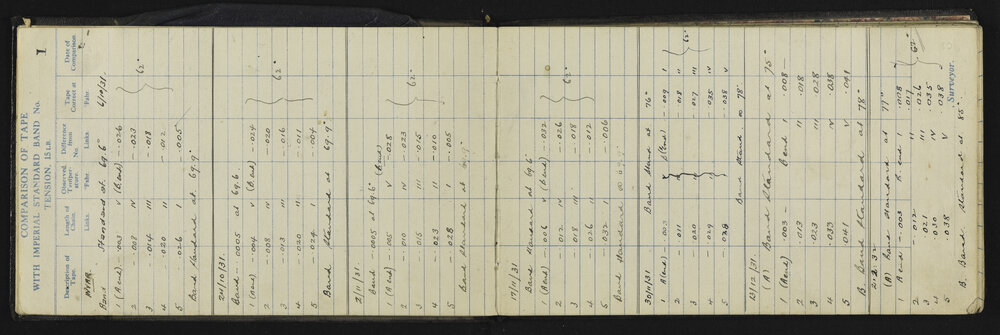 1
COMPARISON OF TAPE
WITH IMPERIAL STANDARD BAND No.
TENSION, 15 LB.
Description of Tape. Length of Chain. Observed Temperature. Difference from No. Tape Correct at Date of Comparison
Links. °Fahr. Links. °Fahr.
Band Standard at 69.6° 6/10/31.
1 (A end) - .003 V (B end) - .026
2 - .008 IV - .023
3 - .014 III - .018
4 - .020 II - .012
5 - .026 I - .005
62°
Band Standard at 69.9°
24/10/31.
Band - .0005 at 69.6.
1 (A end) - .004 V (B end) - .024
2 - .008 IV - .020
3 - .013 III - .016
4 - .020 II - .011
5 - .024 I - .004
62°
Band Standard at 69.9°
2/11/31
Band - .0005 at 69.6°
1 (A end) - .005 V - .028 (B end)
2 - .010 IV - .023
3 - .015 III - .015
4 - .023 II - .010
5 - .028 I - .005
62°
Band Standard at 69.9°
17/11/31
Band Standard at 69.6°
1 (A end) - .006 V (B end) - .032
2 - .012 IV - .026
3 - .018 III - .018
4 - .026 II - .012
5 - .032 I - .006
62°
Band Standard
30/11/31 Band Stand at 76°
1 A (end) - .003 B (End) - .009 I
2 - .011 - .018 II
3 - .020 - .027 III
4 - .029 - .035 IV
5 - .038 V
62°
Band Stand 78°
13/12/31.
(A) Band Standard at 75°
1 (A end) - .003 - B end I .008 -
2 .013 II .018
3 .023 III .028
4 .033 IV .038
5 .041 V .041
B. Band Standard at 78°
2.2.32
(A) Band Standard at 77°
1 A end - .003 B. end I - .008
2 - .012 II .017
3 .021 III .026
4 .030 IV .035
5 .038 V .038
62°
B. Band Standard at 85°.
Surveyor.